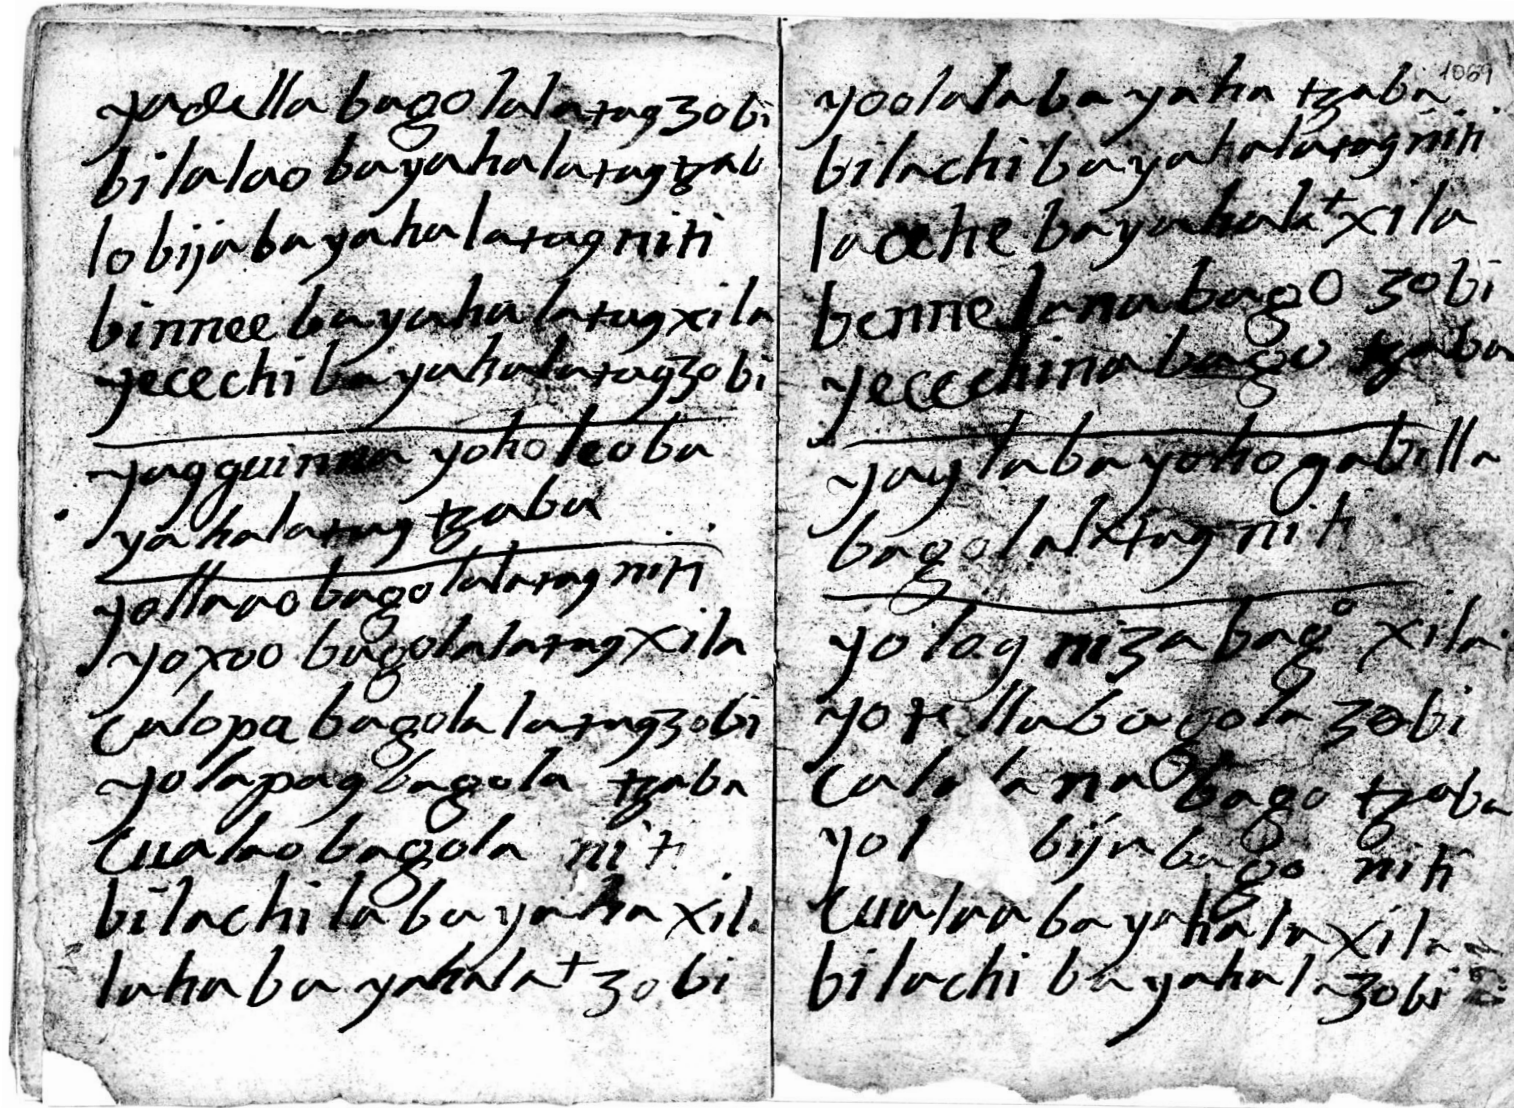 yadella bagolalatag zobi
bilalao bayahalatag tzab
lobija bayahalatag niti
binnee bayahalatag xila
yecechi bayahalatag zobi
yagguinna yoho leoba
yahalatag tzaba
yollaao bagolalatag niti
yoxoo bagolalatag xila
calopa bagolalatag zobi
yolapag bagola tzaba
Cualao bagola niti
bilachi la bayaha xila
laha bayahala+ zobi
1069
yoolala bayaha tzaba
bilachi bayahalatag niti
laoche bayahala+ xila
benne lana bago zobi
yeccechina bago tzaba
yay laba yoho gabilla
bagolalatag niti
yolog niza bago xila
yotella bagola zobi
lana bago tzaba
yol bija bago niti
Cualaa bayahala xila
bilachi bayahala zobi